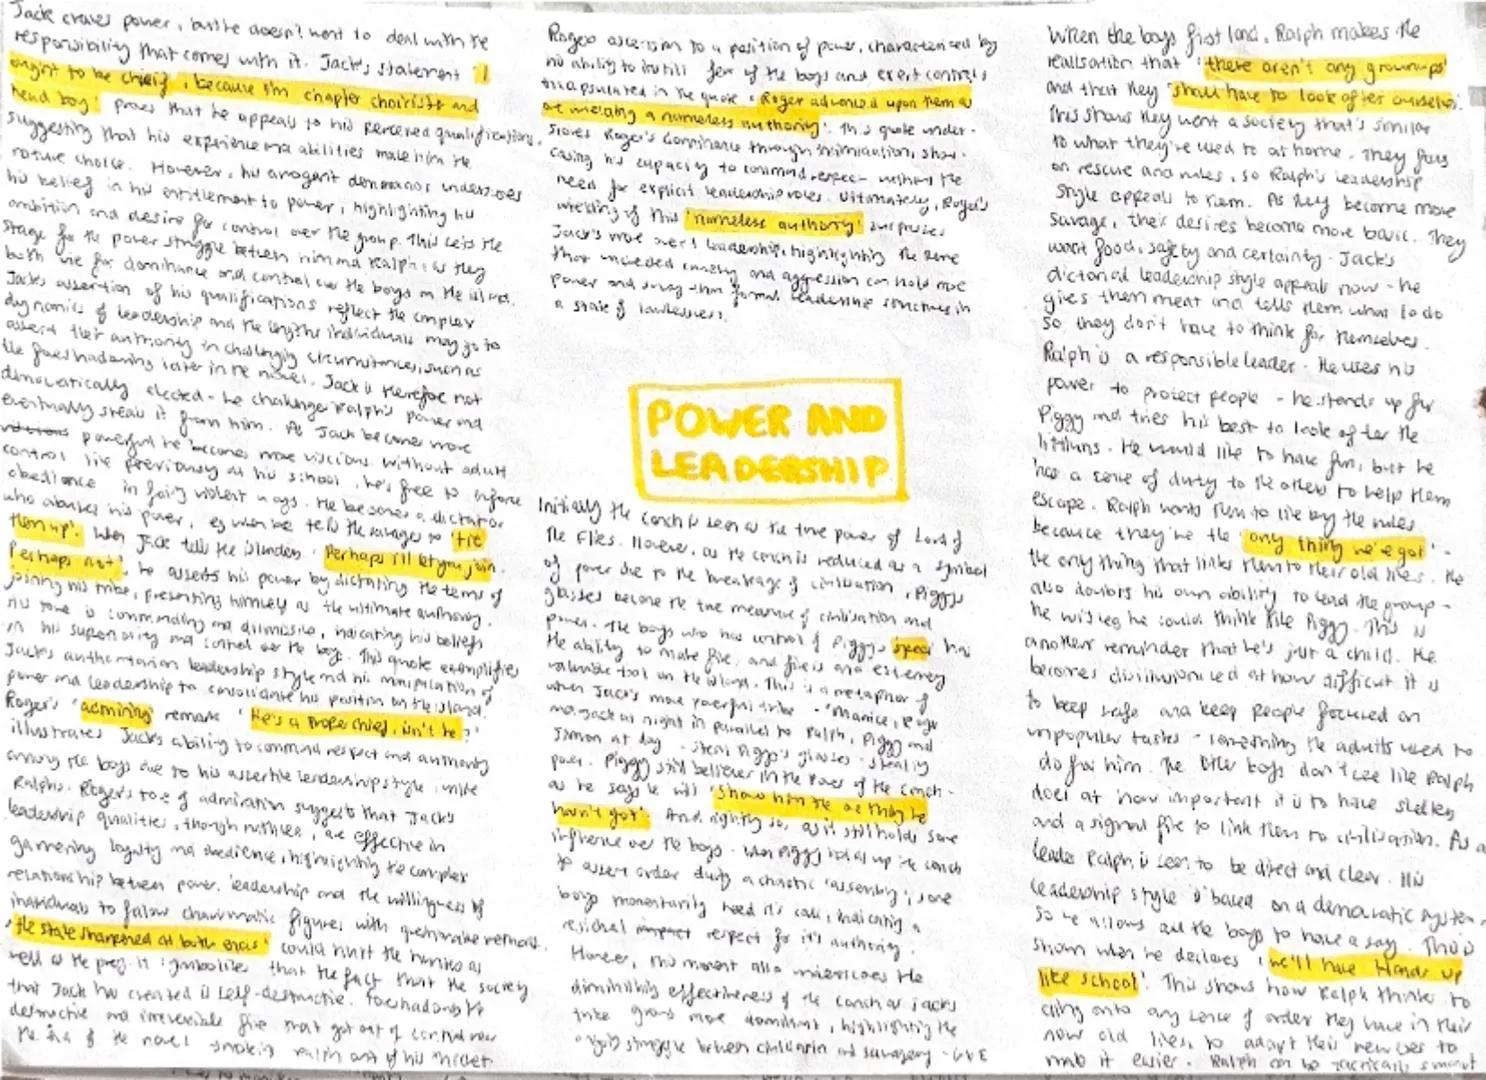 Jack craves power, but he doesn't want to deal with the
responsibility that comes with it. Jack's statement 'I
ought to be chief, because I'm chapter chorister and
head boy' proves that he appeals to his perceived qualifications,
suggesting that his experience and abilities make him the
nature choice. However, his arrogant demeanor underscores
his belief in his entitlement to power, highlighting his
ambition and desire for control over the group. This sets the
stage for the power struggle between him and Ralph, as they
both vie for dominance and control over the boys on the island.
Jack's assertion of his qualifications reflect the complex
dynamics of leadership and the lengths individuals may go to
assert their authority in challenging circumstances, such as
the foreshadowing later in the novel. Jack is therefore not
democratically elected - he challenges Ralph's power and
eventually steals it from him. As Jack becomes more
powerful he becomes more viscious. Without adult
control like previously at his school, he's free to inforce
obedience in fairly violent ways. He becomes a dictator
who abuses his power, eg when he tells the savages to 'tie
them up'. When Jack tells the islanders 'Perhaps I'll let you join.
Perhaps not', he asserts his power by dictating the terms of
joining his tribe, presenting himself as the ultimate authority.
His tone is commanding and dismissive, indicating his beliefs
in his superiority and control over the boys. This quote exemplifies
Jack's authoritarian leadership style and his manipulation of
power and leadership to consolidate his position on the island.
Roger's 'admiring' remark 'He's a proper chief, isn't he?'
illustrates Jack's ability to command respect and authority
among the boys due to his assertive leadership style, unlike
Ralph's. Roger's tone of admiration suggests that Jack's
leadership qualities, though ruthless, are effective in
garnering loyalty and obedience, highlighting the complex
relationship between power, leadership and the willingness of
individuals to follow charismatic figures with questionable methods.
'the stake sharpened at both ends' could hurt the hunter as
well as the prey. It symbolises that the fact that the society
that Jack has created is self-destructive. Foreshadows the
destructive and irreversible fire that got out of control near
the end of the novel smoking Ralph out of his
Roger ascension to a position of power, characterised by
his ability to instill fear of the boys and exert control is
encapsulated in the quote 'Roger advanced upon them as
one wielding a nameless authority'. This quote under-
scores Roger's dominance through intimidation, show-
casing his capacity to command respect without the
need for explicit leadership roles. Ultimately, Roger's
wielding of this 'nameless authority' surpasses
Jack's more overt leadership, highlighting the
that cruelty and aggression can hold more
power and sway than formal leadership structures in
a state of lawlessness.
POWER AND
LEADERSHIP
Initially the conch is seen as the true power of Lord of
the Flies. However, as the conch is reduced as a symbol
of power due to the breakage of civilisation, Piggy's
glasses become the true measure of civilisation and
power. The boys who has control of Piggy's specs has
the ability to make fire, and fire is an
valuable tool on the island. This is a metaphor of
when Jack's more powerful tribe - 'Maurice, Roger
and Jack at night in parallel to Ralph, Piggy and
Simon at day - steal Piggy's glasses - stealing
power. Piggy still believes in the power of the conch -
as he says he will 'show him the one thing he
hasn't got'. And rightly so, as it still holds some
influence over the boys. When Piggy holds up the conch
to assert order during a chaotic 'assembly', some
boys momentarily heed it's call, indicating a
residual respect for it's authority.
However, this moment also underscores the
diminishing effectiveness of the conch as Jack's
tribe grows more dominant, highlighting the
struggle between civilisation and savagery -
When the boys first land, Ralph makes the
realisation that 'there aren't any grownups'
and that they 'shall have to look after ourselves'.
This shows they want a society that's similar
to what they're used to at home. They focus
on rescue and rules, so Ralph's leadership
style appeals to them. As they become more
savage, their desires become more basic. They
want food, safety and certainty. Jack's
dictorial leadership style appeals now - he
gives them meat and tells them what to do
so they don't have to think for themselves.
Ralph is a responsible leader. He uses his
power to protect people - he stands up for
Piggy and tries his best to look after the
littluns. He would like to have fun, but he
has a sense of duty to the others to help them
escape. Ralph wants them to live by the rules
because they're the 'only thing we've got' -
the only thing that links them to their old lives. He
also doubts his own ability to lead the group -
he wishes he could think like Piggy. This is
another reminder that he's just a child. He
becomes disillusioned at how difficult it is
to keep safe and keep people focused on
unpopular tasks - something the adults used to
do for him. The other boys don't see like Ralph
does at how important it is to have shelters
and a signal fire to link them to civilisation. As a
leader Ralph is seen to be direct and clear. His
leadership style is based on a democratic system -
so he allows all the boys to have a say. This is
shown when he declares 'we'll have Hands up
like school'. This shows how Ralph thinks to
cling onto any sense of order they have in their
now old lives, to adapt their new ones to
make it easier. Ralph can be